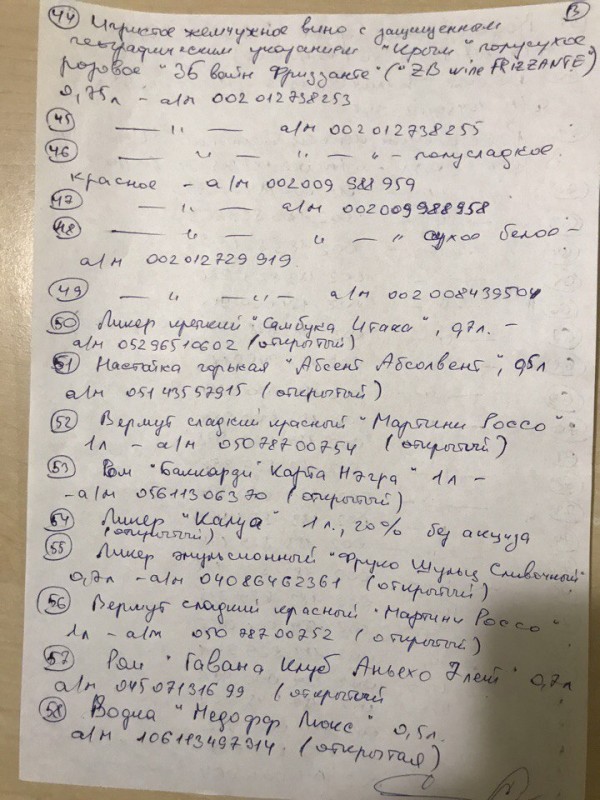 3
44 Игристое жемчужное вино с защищенным
географическим указанием "Крым" полусухое
розовое "ЗБ вайн Фриззанте" ("ZB wine FRIZZANTE)
0,75л – а/м 002 012738253
45 — " — а/м 002 012738255
46 — " — " — " – полусладкое
красное – а/м 002009 988 959
47 — " — а/м 002009988958
48 — " — " — " сухое белое –
а/м 002 012729 919.
49 — " — " — а/м 002 008439504
50 Ликер крепкий "Самбука Итака", 0,7л. –
а/м 05296510602 (открытый)
51 Настойка горькая "Абсент Абсолвент", 0,5л
а/м 05143557915 (открытый)
52 Вермут сладкий красный "Мартини Россо"
1л – а/м 05078700754 (открытый)
53 Ром "Баккарди Карта Нэгра" 1л –
– а/м 05611306370 (открытый)
54 Ликер "Калуа" 1л., 20% без акциза
(открытый)
55 Ликер эмульсионный "Фруко Шульц Сливочный"
0,7л – а/м 04086462361 (открытый)
56 Вермут сладкий красный "Мартини Россо"
1л – а/м 050 78700752 (открытый)
57 Ром "Гавана Клуб Аньехо 7 лет" 0,7л
а/м 045 07131699 (открытый
58 Водка "Медофор Люкс" 0,5л.
а/м 106113497314 (открытая)